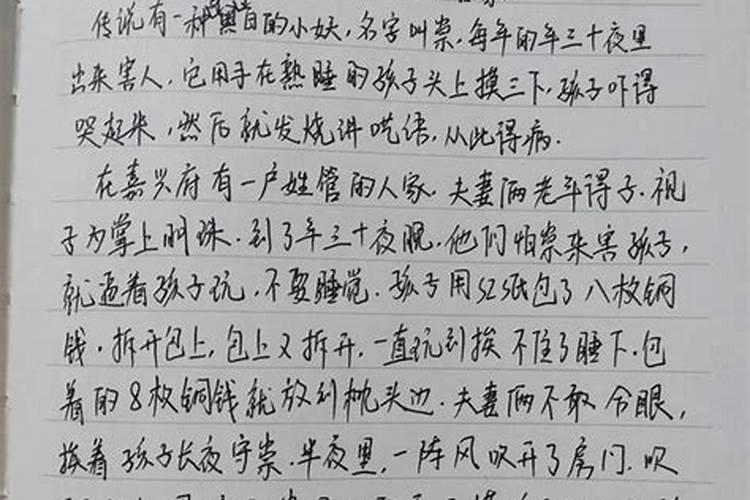 传说有一种黑身白的小妖，名字叫祟，每年的年三十夜里
出来害人，它用手在熟睡的孩子头上摸三下，孩子吓得
哭起来，然后就发烧讲呓语，从此得病.
在嘉兴府有一户姓管的人家.夫妻俩老年得子.视
子为掌上明珠.到了年三十夜晚，他们怕祟来害孩子，
就逼着孩子玩，不要睡觉.孩子用红纸包了八枚铜
钱.拆开包上，包上又拆开，一直玩到挨不住了睡下.包
着的8枚铜钱就放到枕头边.夫妻俩不敢合眼，
挨着孩子长夜守祟.半夜里，一阵风吹开了房门.吹